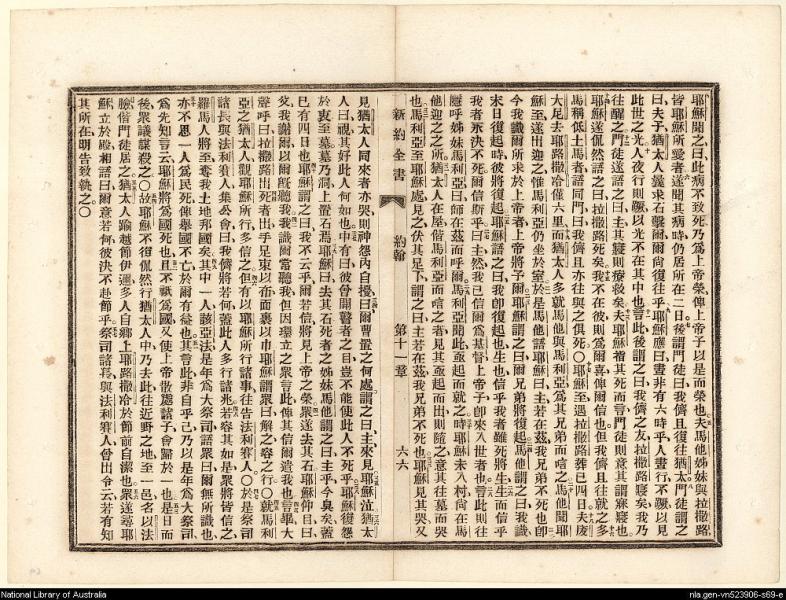 耶穌聞之曰此病不致死乃爲上帝榮俾上帝子以是而榮也夫馬他姊妹與拉撒路
皆耶穌所愛者遂聞其病時仍居所在二日後謂門徒曰我儕且復往猶太門徒謂之
曰夫子猶太人曩求石擊爾爾尚復往乎耶穌應曰晝非有六時乎人晝行不蹶以見
此世之光人夜行則蹶以光不在其中也言此後謂之曰我儕之友拉撒路寢矣我乃
往醒之門徒遂語之曰主其寢則療救矣夫耶穌稽其死而言門徒則意其謂寐寢也
耶穌遂侃然語之曰拉撒路死矣我不在彼則爲爾喜俾爾信也但我儕且往就之多
馬稱低土馬者語同門曰我儕且亦往與之俱死〇耶穌至遇拉撒路葬已四日夫
大尼去耶路撒冷僅六里而猶太人多就馬他與馬利亞爲其兄弟而唁之馬他聞耶
穌至遂出迎之惟馬利亞仍坐於室於是馬他語耶穌曰主若在茲我兄弟不死也卽
今我識爾所求於上帝者上帝將予爾耶穌謂之曰爾兄弟將復起馬他謂之曰我識
末日復起時彼將復起耶穌語之曰我卽復起也生也信乎我者雖死將生生而信乎
我者永決不死爾信斯乎曰主然我已信爾爲基督上帝子卽來入世者也言此則往
呼姊妹馬利亞曰師在茲而呼爾馬利亞聞此亟起而就之時耶穌未入村尚在馬
他迎之之所猶太人在屋偕馬利亞而唁之者見其亟起而出則隨之意其往墓而哭
也馬利亞至耶穌處見之伏其足下謂之曰主若在茲我兄弟不死也耶穌見其哭又
新約全書 約翰 第十一章 六六
見猶太人同來者亦哭則神怨內自擾曰爾曹置之何處謂之曰主來見耶穌泣猶太
人曰視其好此人何如也中有曰彼曾開瞽者之目豈不能使此人不死乎耶穌復怨
於衷至墓墓乃洞上置石焉耶穌曰去其石死者之姊妹馬他謂之曰主乎今臭矣蓋
已有四日也耶穌謂之曰我不云乎爾若信將見上帝之榮衆遂去其石耶穌仰目曰
父我謝爾以爾旣聽我我識爾常聽我但因環立之衆言此俾其信爾遣我也言畢大
聲呼曰拉撒路出死者出手足束以布而裹以巾耶穌謂衆曰解之容之行〇就馬利
亞之猶太人觀耶穌所行多信之但有以耶穌所行諸事往告法利賽人〇於是祭司
諸長與法利賽人集公會曰我儕將若何蓋此人多行諸兆若容其如是衆將皆信之
羅馬人將至奪我土地邦國矣其中一人該亞法是年爲大祭司語衆曰爾無所識也
亦不思一人爲民死俾舉國不亡於爾有益也其言此非自乎己乃以是年爲大祭司
爲先知言云耶穌將爲國死也且不爲國又使上帝散處諸子會歸於一也是日而
後衆議謀殺之〇故耶穌不復侃然行猶太人中乃去此往近野之地至一邑名以法
臉偕門徒居之猶太人踰越節伊邇多人自鄉上耶路撒冷於節前自潔也衆遂尋耶
穌立於殿相語曰爾意若何彼決不赴節乎祭司諸長與法利賽人曾出令云若有知
其所在明告致執之〇
National Library of Australia
nla.gen-vn523906-s69-e